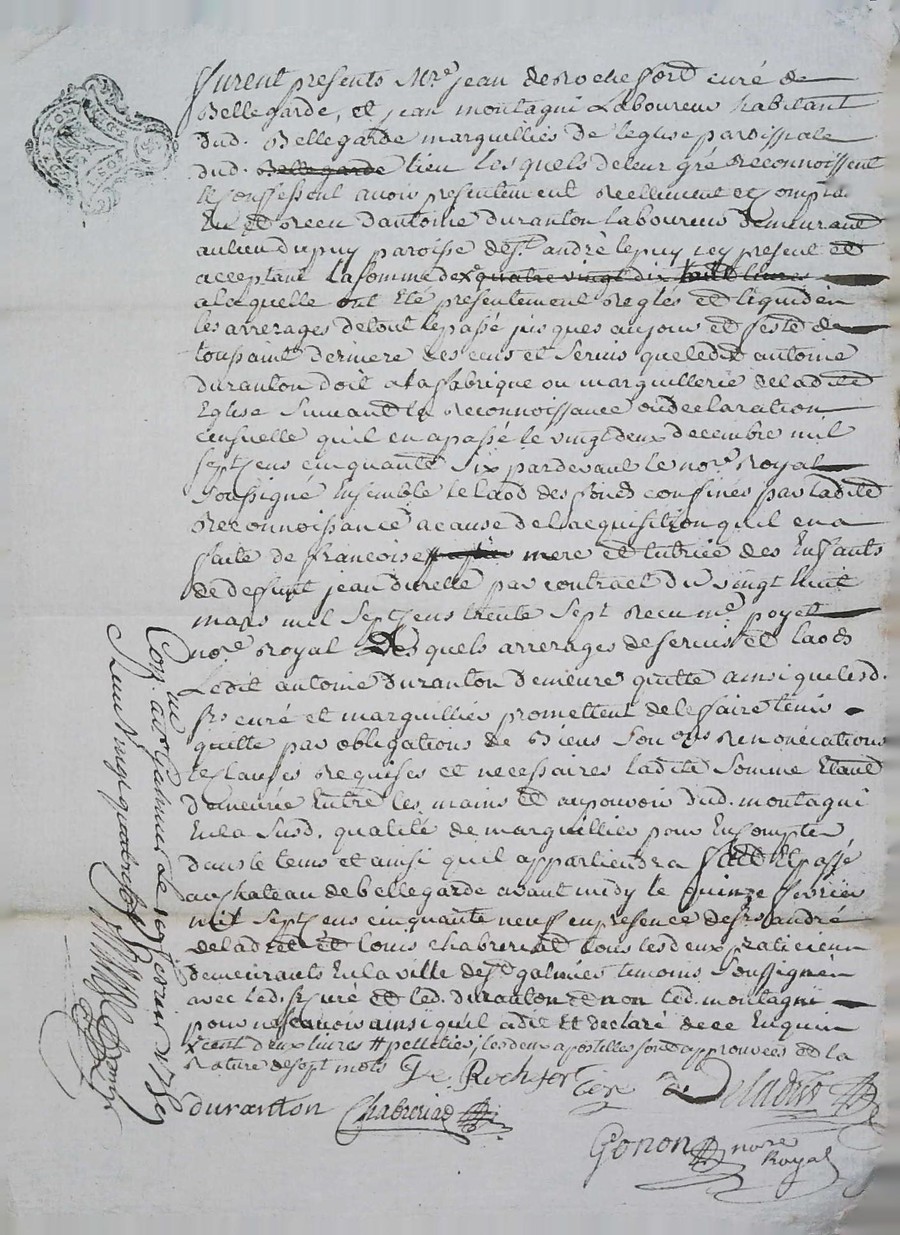 furent presents Mre jean de Rochefort curé de
Bellegarde, et jean montagni Laboureur habitant
dud. Bellegarde marguilliés de l'eglise paroissiale
dud. Bellegarde lieu Les quels de leur gré Reconnoissent
& Confessent avoir presentement Reellement et Compta
En et Receu d'antoine duranton laboureur demeurant
au lieu du puy paroisse de St. andré le puy icy present et
acceptant La somme de x quatre vingt dix huit livres
a laquelle ont Eté presentement Regles et liquidés
les arrerages de tout le passé jusques au jour et feste de
toussaint derniere des cens et Servis que ledit antoine
duranton doit a la fabrique ou marguillerie de ladite
Eglise Suivant la Reconnoissance ou declaration
censuelle qu'il en a passé le vingt deux decembre mil
sept Cens cinquante Six pardevant le nore Royal
soussigné Ensemble le laod des fonds confinés par ladite
Reconnoissance a cause de l'acquisition qu'il en a
faite de francoise # mere et tutrice des Enfants
de deffunt jean durelle par contract du vingt huit
mars mil Sept Cens trente Sept Receu me poyet
nore Royal Des quels arrerages de servis et laods
Ledit antoine duranton demeure quitte ainsi que lesd.
srs curé et marguilliés promettent de le faire tenir
quitte par obligations de Biens Son ons Renonciations
& Clauses Requises et necessaires ladite Somme Etant
demeurée Entre les mains et au pouvoir dud. montagni
En la Susd. qualité de marguilliés pour En Compter
dans le tems et ainsi qu'il appartiendra fait Et passé
au chateau de bellegarde avant midy le quinze fevrier
mil Sept Cens cinquante neuf en presence de srs andré
deladret Et louis chabreriat tous les deux praticiens
demeurants En la ville de St galmier temoins Soussignés
avec led. sr Curé et led. duranton et non led. montagni
pour ne scavoir ainsi qu'il a dit Et declaré de ce Enquis
x cent deux livres # pelletier, les deux apostilles sont approuvées et la
Rature de sept mots G De Rochefort
duranton Chabreriat
Gonon nore
Royal
Conllé a St Galmier le 17 fevrier 1759
Reçu vingt quatre sols